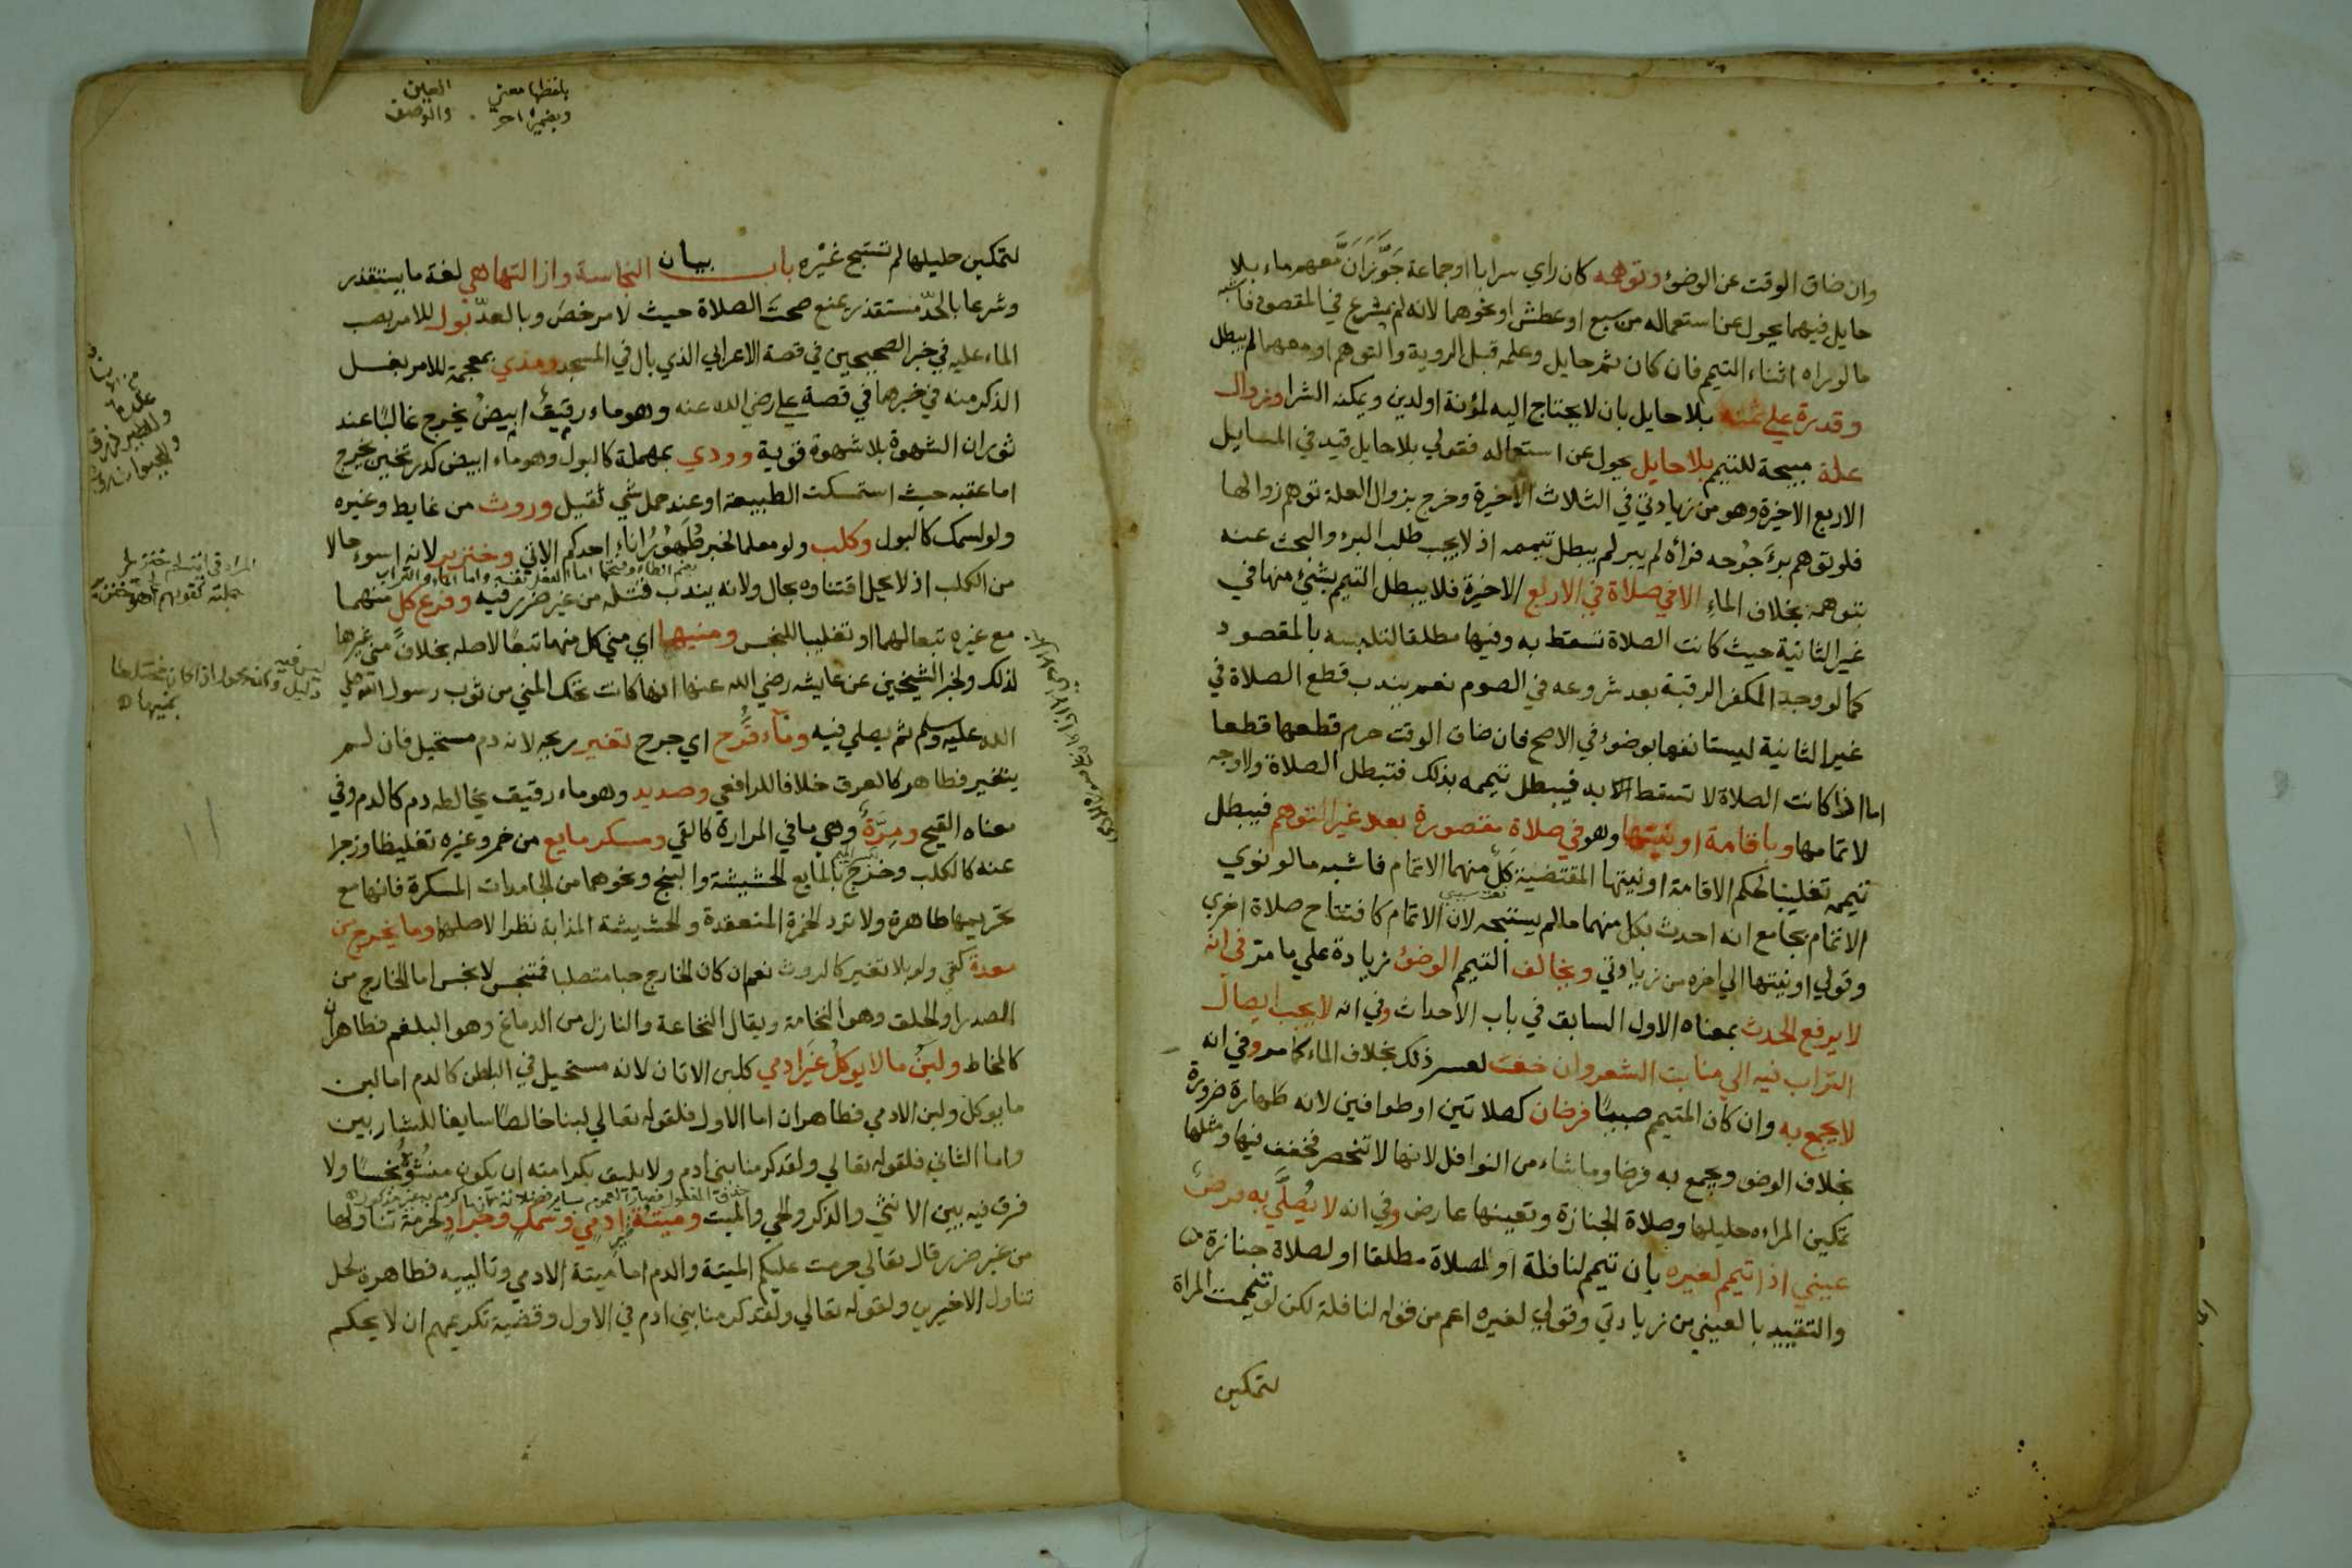 وان ضاق الوقت عن الوضؤ وتوهمه كان راي سرابا او جماعة جَوَّزَ اَنَّ معهم ماء بلا
حايل فيهما يحول عن استعماله من سبع او عطش او نحوهما لانه لم يشرع في المقصود فاشبه
ما لو راه اثناء التيمم فان كان ثم حايل وعلمه قبل الروية والتوهم او معهما لم يبطل
وقدرة علي ثمنه بلا حايل بان لا يحتاج اليه لمؤنة او لدين ويمكنه الشرا وزوال
علة مبيحة للتيمم بلا حايل يحول عن استعماله فقولي بلا حايل قيد في المسايل
الاربع الاخيرة وهو من زيادتي في الثلاث الاخيرة وخرج بزوال العلة توهم زوالها
فلو توهم برءَ جَرْحه فراه لم يبر لم يبطل تيممه اذ لا يجب طلب البرء والبحث عنه
بتوهمه بخلاف الماءِ الا في صلاة في الاربع الاخيرة فلا يبطل التيمم بشئ منها في
غير الثانية حيث كانت الصلاة تسقط به وفيها مطلقا لتلبسه بالمقصود
كما لو وجد المكفر الرقبة بعد شروعه في الصوم نعم يندب قطع الصلاة في
غير الثانية ليستانفها بوضوء في الاصح فان ضاق الوقت حرم قطعها قطعا
اما اذا كانت الصلاة لا تسقط به فيبطل تيممه بذلك فتبطل الصلاة ولا وجه
لاتمامها وباقامة او نيتها وهو في صلاة مقصورة بعد غير التوهم فيبطل
تيممه تغليبا لحكم الاقامة او نيتها المقتضية كلٌّ منهما الاتمام فاشبه ما لو نوي
الاتمام بجامع انه احدث بكل منهما ما لم يستبحه لان الاتمام كافتتاح صلاة اخري
وقولي او نيتها الي اخره من زيادتي ويخالف التيمم الوضؤ زيادة علي ما مر في انه
لا يرفع الحدث بمعناه الاول السابق في باب الاحداث وفي انه لا يجب ايصال
التراب فيه الي منابت الشعر وان خفت لعسر ذلك بخلاف الماء كما مر وفي انه
لا يجمع به وان كان المتيمم صبيًا فرضان كصلاتين او طوافين لانه طهارة ضرورة
بخلاف الوضو ويجمع به فرضا وما شاء من النوافل لانها لا تنحصر فخفف فيها ومثلها
تمكين المراه حليلها وصلاة الجنازة وتعينها عارض وفي انه لا يُصلَّي به فرضٌ
عيني اذا تيمم لغيره بان تيمم لنافلة او لصلاة مطلقا او لصلاة جنازة
والتقييد بالعيني من زيادتي وقولي لغيره اعم من قوله لنافلة لكن لو تيممت المراة
لتمكين
بلفظها معني
وبضميره اخر
العين
والوصف
لتمكين حليلها لم تستبح غيْره باب بيان النجاسة وازالتها هي لغة ما يستقذر
وشرعا بالحدّ مستقذر يمنع صحت الصلاة حيث لا مرخص وبالعدّ بول للامر بصب
الماء عليه في خبر الصحيحين في قصة الاعرابي الذي بال في المسجد ومذي بمعجمة للامر بغسل
الذكر منه في خبرهما في قصة علي رضي الله عنه وهو ماء رقيقٌ ابيضُ يخرج غالبًا عند
ثوران الشهوة بلا شهوة قوية وودي بمهملة كالبول وهو ماء ابيض كدر ثخين يخرج
اما عقبه حيث استمسكت الطبيعة او عند حمل شي ثقيل وروث من غايط وغيره
ولو لسمك كالبول وكلب ولو معلما لخبر طُهوُرُ اناءِ احدكم الاتي وخنزير لانه اسوء حالا
من الكلب اذ لا يحل اقتناوه بحال ولانه يندب قتله من غير ضرر فيه وفرع كل منهما
مع غيره تبعا لهما او تغليبا للنجس ومنيهما اي مني كل منهما تبعًا لاصله بخلاف مني غيرها
لذلك ولخبر الشيخين عن عايشه رضي الله عنها انها كانت تحك المني من ثوب رسول الله صلي
الله عليه وسلم ثم يصلي فيه وماء قُرْح اي جرح تغير ريحه لانه دم مستحيل فان لم
يتغير فطاهر كالعرق خلافا للرافعي وصديد وهو ماء رقيق يخالطه دم كالدم وفي
معناه القيح ومِرَّةٌ وهي ما في المرارة كالقي ومسكر مايع من خمر وغيره تغليظا وزجرا
عنه كالكلب وخرج بالمايع الحشيشة والبنج ونحوهما من الجامدات المسكرة فانها مع
تحريمها طاهرة ولا ترد الخمرة المنعقدة والحشيشة المذابة نظرا لاصلهما وما يخرج من
معدة كقي ولو بلا تغير كالروث نعم ان كان الخارج حبا متصلبا فمتنجس لا نجس اما الخارج من
الصدر او الحلق وهو النخامة ويقال النخاعة والنازل من الدماغ وهو البلغم فطاهران
كالمخاط ولبَنُ ما لا يوكل غَير ادمي كلبن الاتان لانه مستحيل في الباطن كالدم اما لبن
ما يوكل ولبن الادمي فطاهران اما الاول فلقوله تعالي لبنا خالصًا سايغا للشاربين
واما الثاني فلقوله تعالي ولقد كرمنا بني ادم ولا يليق بكرامته ان يكون منشؤه نجسًا ولا
فرق فيه بين الانثي والذكر والحي والميت وميتةُ غير ادمي وسمك وجراد لحرمة تناولها
من غير ضرر قال تعالي حرمت عليكم الميتة والدم اما ميتة الادمي وتالييه فطاهرة لحل
تناول الاخيرين ولقوله تعالي ولقد كرمنا بني ادم في الاول وقضية تكريمهم ان لا يحكم